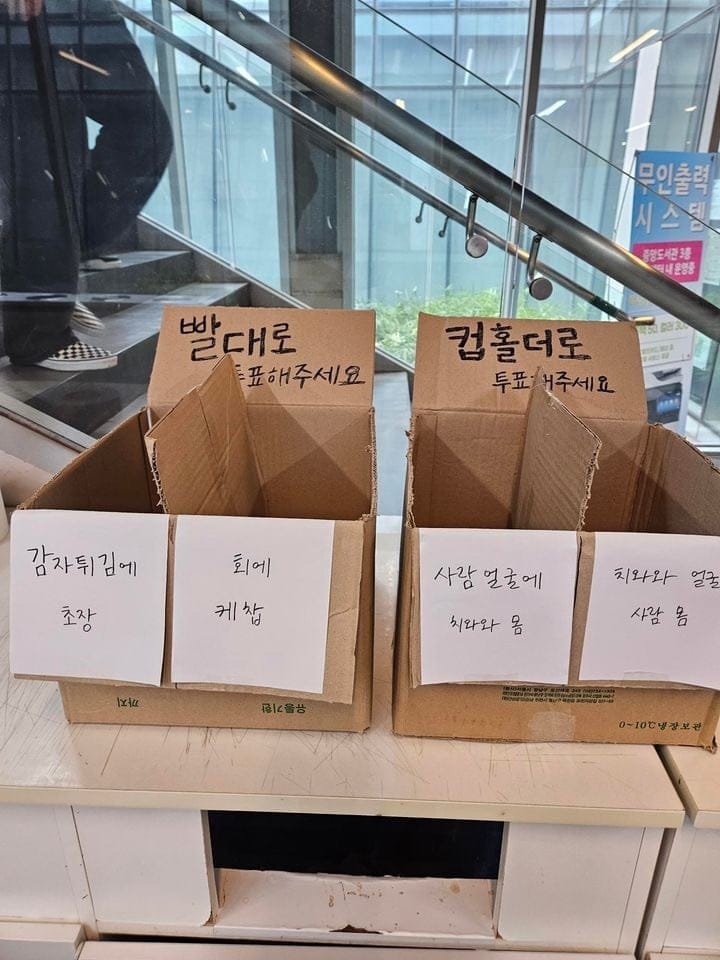 빨대로
투표해주세요
컵홀더로
투표해주세요
감자튀김에
초장
회에
케찹
사람 얼굴에
치와와 몸
치와와 얼굴
사람 몸
까지
유통기한
0~10℃냉장보관
무인출력
시스템
중앙도서관 3층
내 운영중